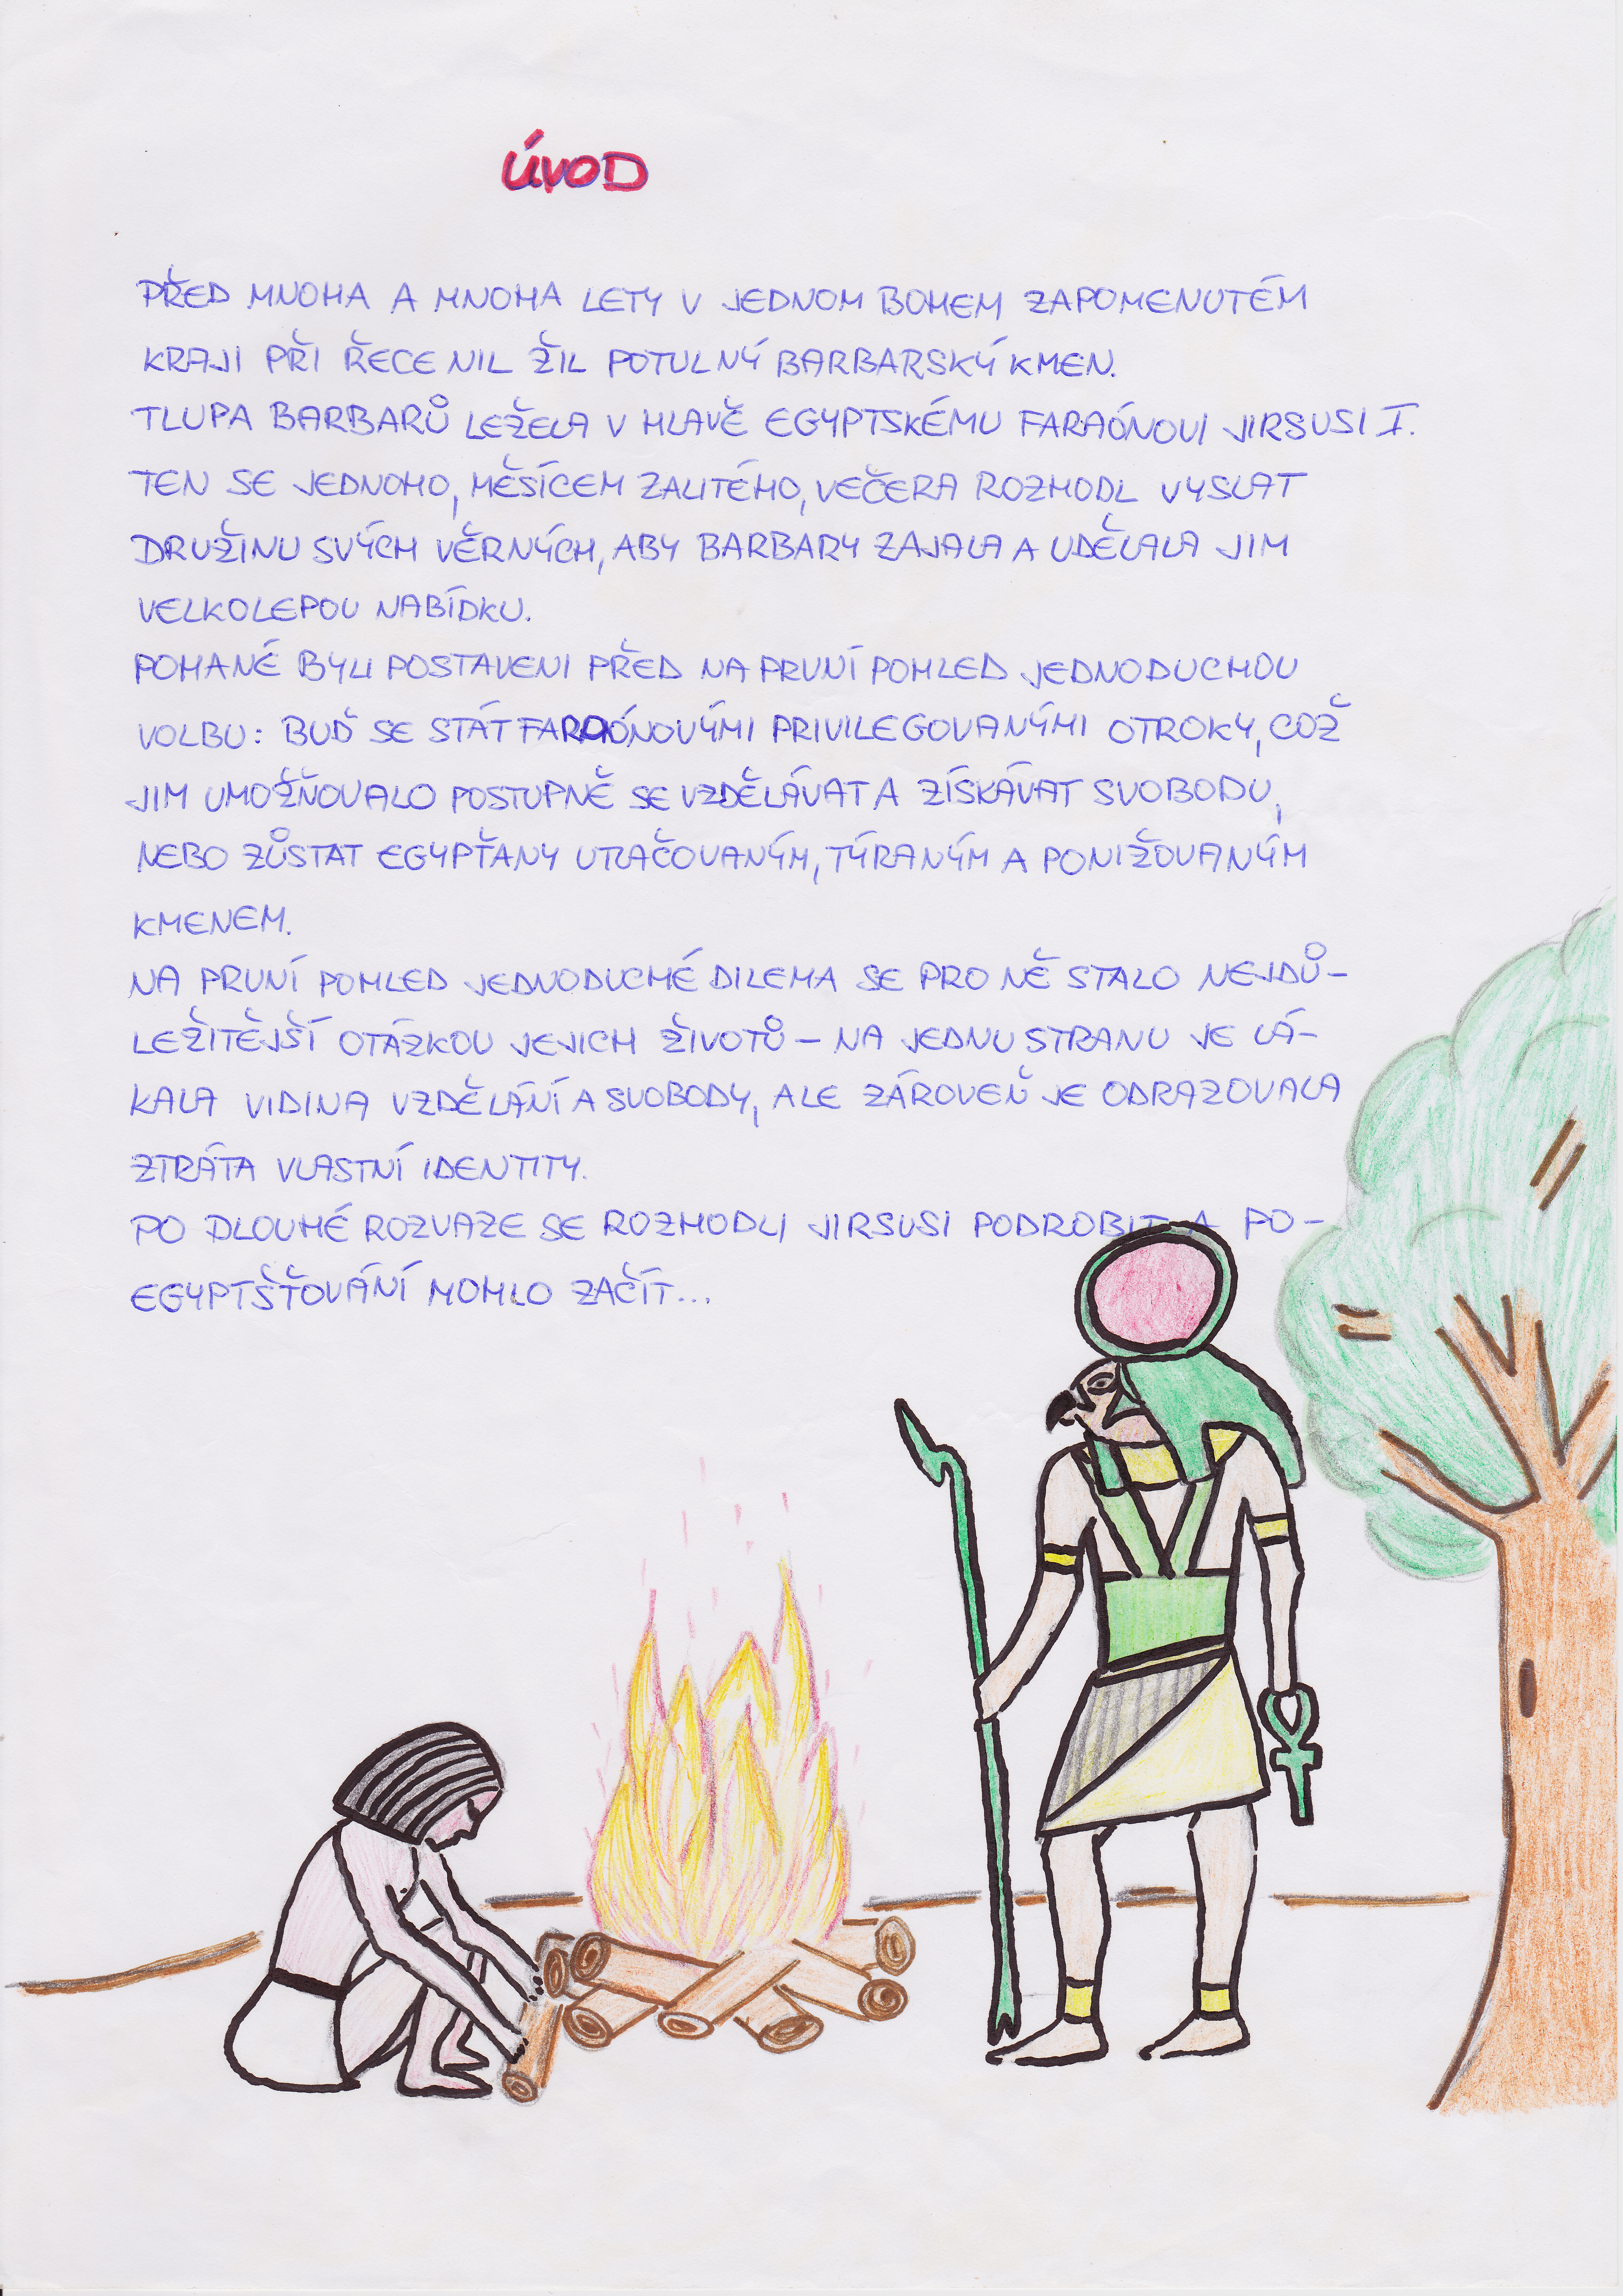 ÚVOD
PŘED MNOHA A MNOHA LETY V JEDNOM BOHEM ZAPOMENUTÉM
KRAJI PŘI ŘECE NIL ŽIL POTULNÝ BARBARSKÝ KMEN.
TLUPA BARBARŮ LEŽELA V HLAVĚ EGYPTSKÉMU FARAÓNOVI JIRSUSI I.
TEN SE JEDNOHO, MĚSÍCEM ZALITÉHO, VEČERA ROZHODL VYSLAT
DRUŽINU SVÝCH VĚRNÝCH, ABY BARBARY ZAJALA A UDĚLALA JIM
VELKOLEPOU NABÍDKU.
POHANÉ BYLI POSTAVENI PŘED NA PRVNÍ POHLED JEDNODUCHOU
VOLBU: BUĎ SE STÁT FARAÓNOVÝMI PRIVILEGOVANÝMI OTROKY, COŽ
JIM UMOŽŇOVALO POSTUPNĚ SE VZDĚLÁVAT A ZÍSKÁVAT SVOBODU,
NEBO ZŮSTAT EGYPŤANY UTLAČOVANÝM, TÝRANÝM A PONIŽOVANÝM
KMENEM.
NA PRVNÍ POHLED JEDNODUCHÉ DILEMA SE PRO NĚ STALO NEJDŮ-
LEŽITĚJŠÍ OTÁZKOU JEJICH ŽIVOTŮ – NA JEDNU STRANU JE LÁ-
KALA VIDINA VZDĚLÁNÍ A SVOBODY, ALE ZÁROVEŇ JE ODRAZOVALA
ZTRÁTA VLASTNÍ IDENTITY.
PO DLOUHÉ ROZVAZE SE ROZHODLI JIRSUSI PODROBIT A PO-
EGYPTŠŤOVÁNÍ MOHLO ZAČÍT...